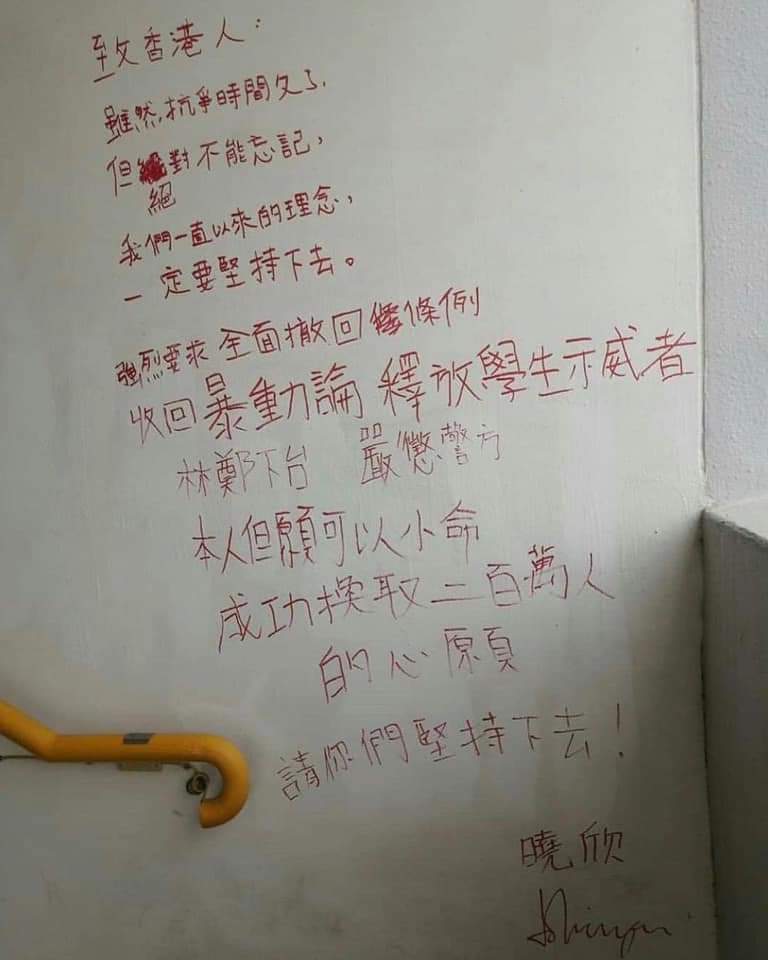 致香港人：
雖然，抗爭時間久了，
但絕對不能忘記，
我們一直以來的理念，
一定要堅持下去。
強烈要求 全面撤回條例
收回暴動論 釋放學生示威者
林鄭下台 嚴懲警方
本人但願可以小命
成功換取二百萬人
的心願
請你們堅持下去！
曉欣